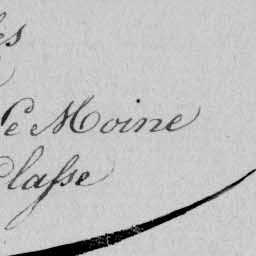 es
Le Moine
Classe